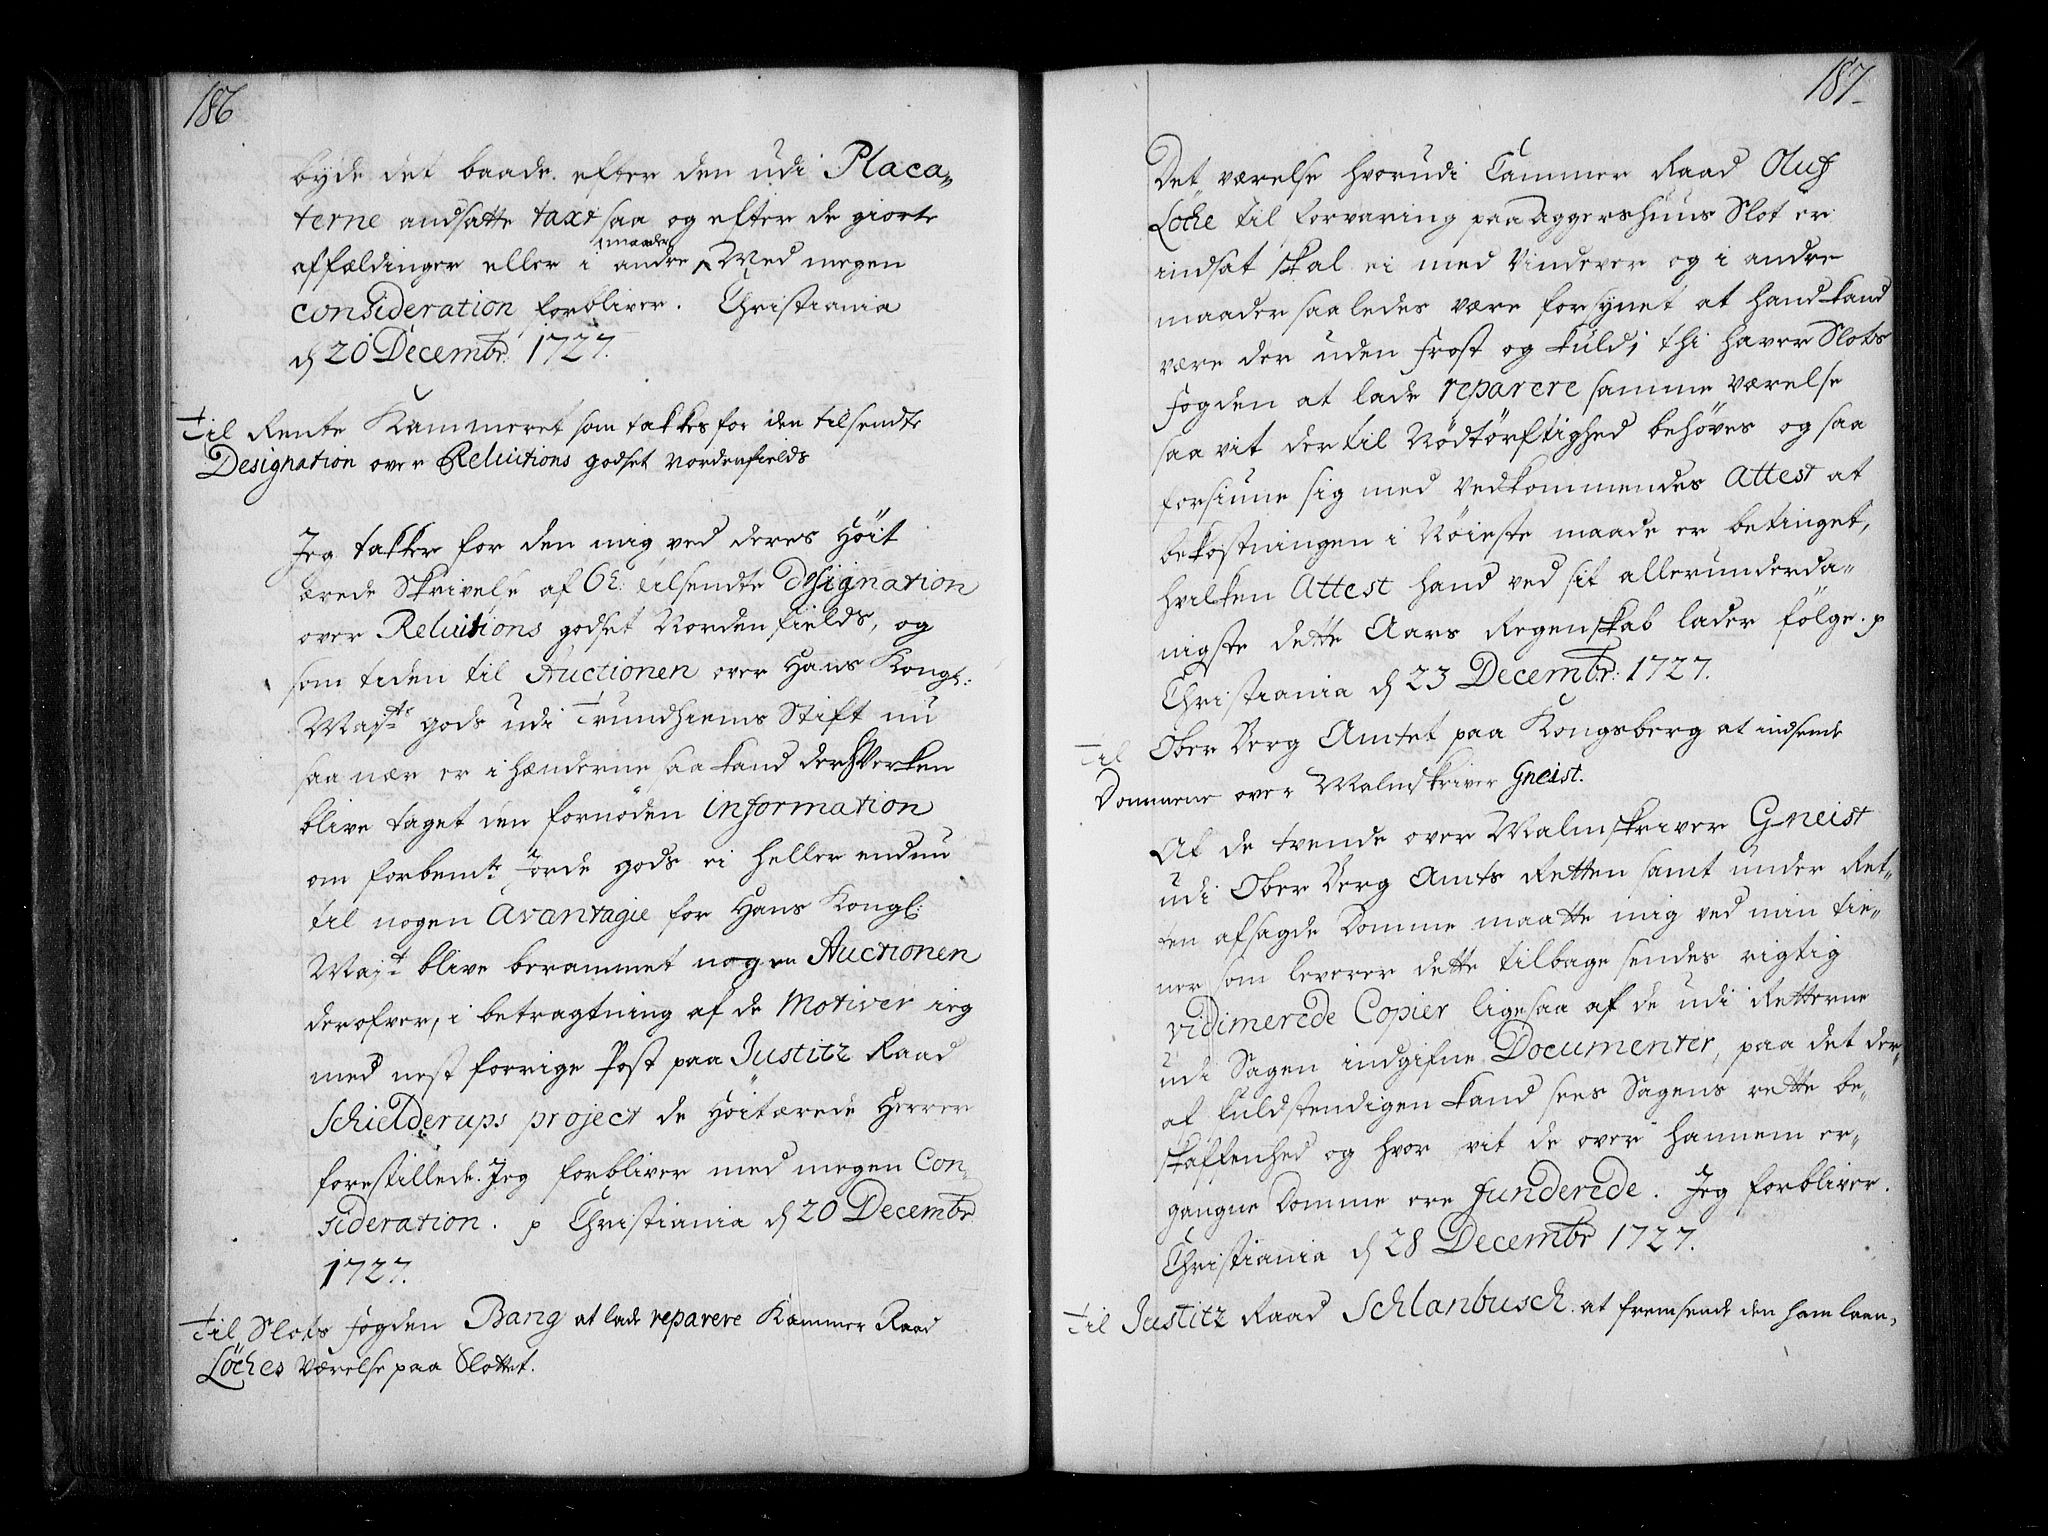 186
byde det baade efter den udi Placa„
terne andsatte taxt saa og efter de giorte
affældinger eller i andre maader Med megen
consideration forbliver. Christiania
d 20 Decembr: 1727.
Til Rente Kammeret som takkes for den tilsendte
Designation over Reluitions godset Nordenfields
Jeg takker for den mig ved deres Høit
ærede Skrivelse af 6t: tilsendte Designation
over Reluitions godset Nordenfields, og
som tiden til Auctionen over Hans Kongl:
Majts gods udi Trundhiems Stift nu
saa nær er i hænderne saa kand der hverken
blive taget den fornøden information
om forbemte Jorde gods ei heller endnu
til nogen Avantagie for Hans Kongl:
Majt blive berammet nogen Auctionen
derofver, i betragtning af de Motiver ieg
med nest forrige Post paa Justitz Raad
Schielderups project de Høitærede Herrer
forestillede. Jeg forbliver med megen Con„
sideration. p Christiania d 20 Decembr
1727.
Til Slots Fogden Bang at lade reparere Kammer Raad
Löches Værelse paa Slottet.
187
Det værelse hvorudi Cammer Raad Oluf
Loche til forvaring paa Aggershuus Slot er
indsat skal ei med Vinduer og i andre
maader saaledes være forsynet at hand kand
være der uden frost og kuld; thi haver Slots
fogden at lade reparere samme værelse
saa vit dertil Nödtörftighed behöves og saa
forsiune sig med Vedkommendes Attest at
bekostningen i Nöieste maade er betinget,
hvilken Attest hand ved sit allerunderda„
nigste dette Aars Regenskab lader fölge. p
Christiania d 23 Decembr: 1727.
Til Ober Berg Amtet paa Kongsberg at indsende
Dommene over Malmskriver Gneist.
Af de tvende over Malmskriver Gneist
udi Ober Berg Amts Retten samt under Ret„
ten afsagde Domme maatte mig ved min tie„
ner som leverer dette tilbage sendes rigtig
vidimerede Copier ligesaa af de udi Retterne
udi Sagen indgifne Documenter, paa det der„
af fuldstendigen kand sees Sagens rette be„
skaffenhed og hvor vit de over hannem er„
gangne Domme ere funderede. Jeg forbliver.
Christiania d 28 Decembr 1727.
Til Justitz Raad Schlanbusch at fremsende den ham laan„